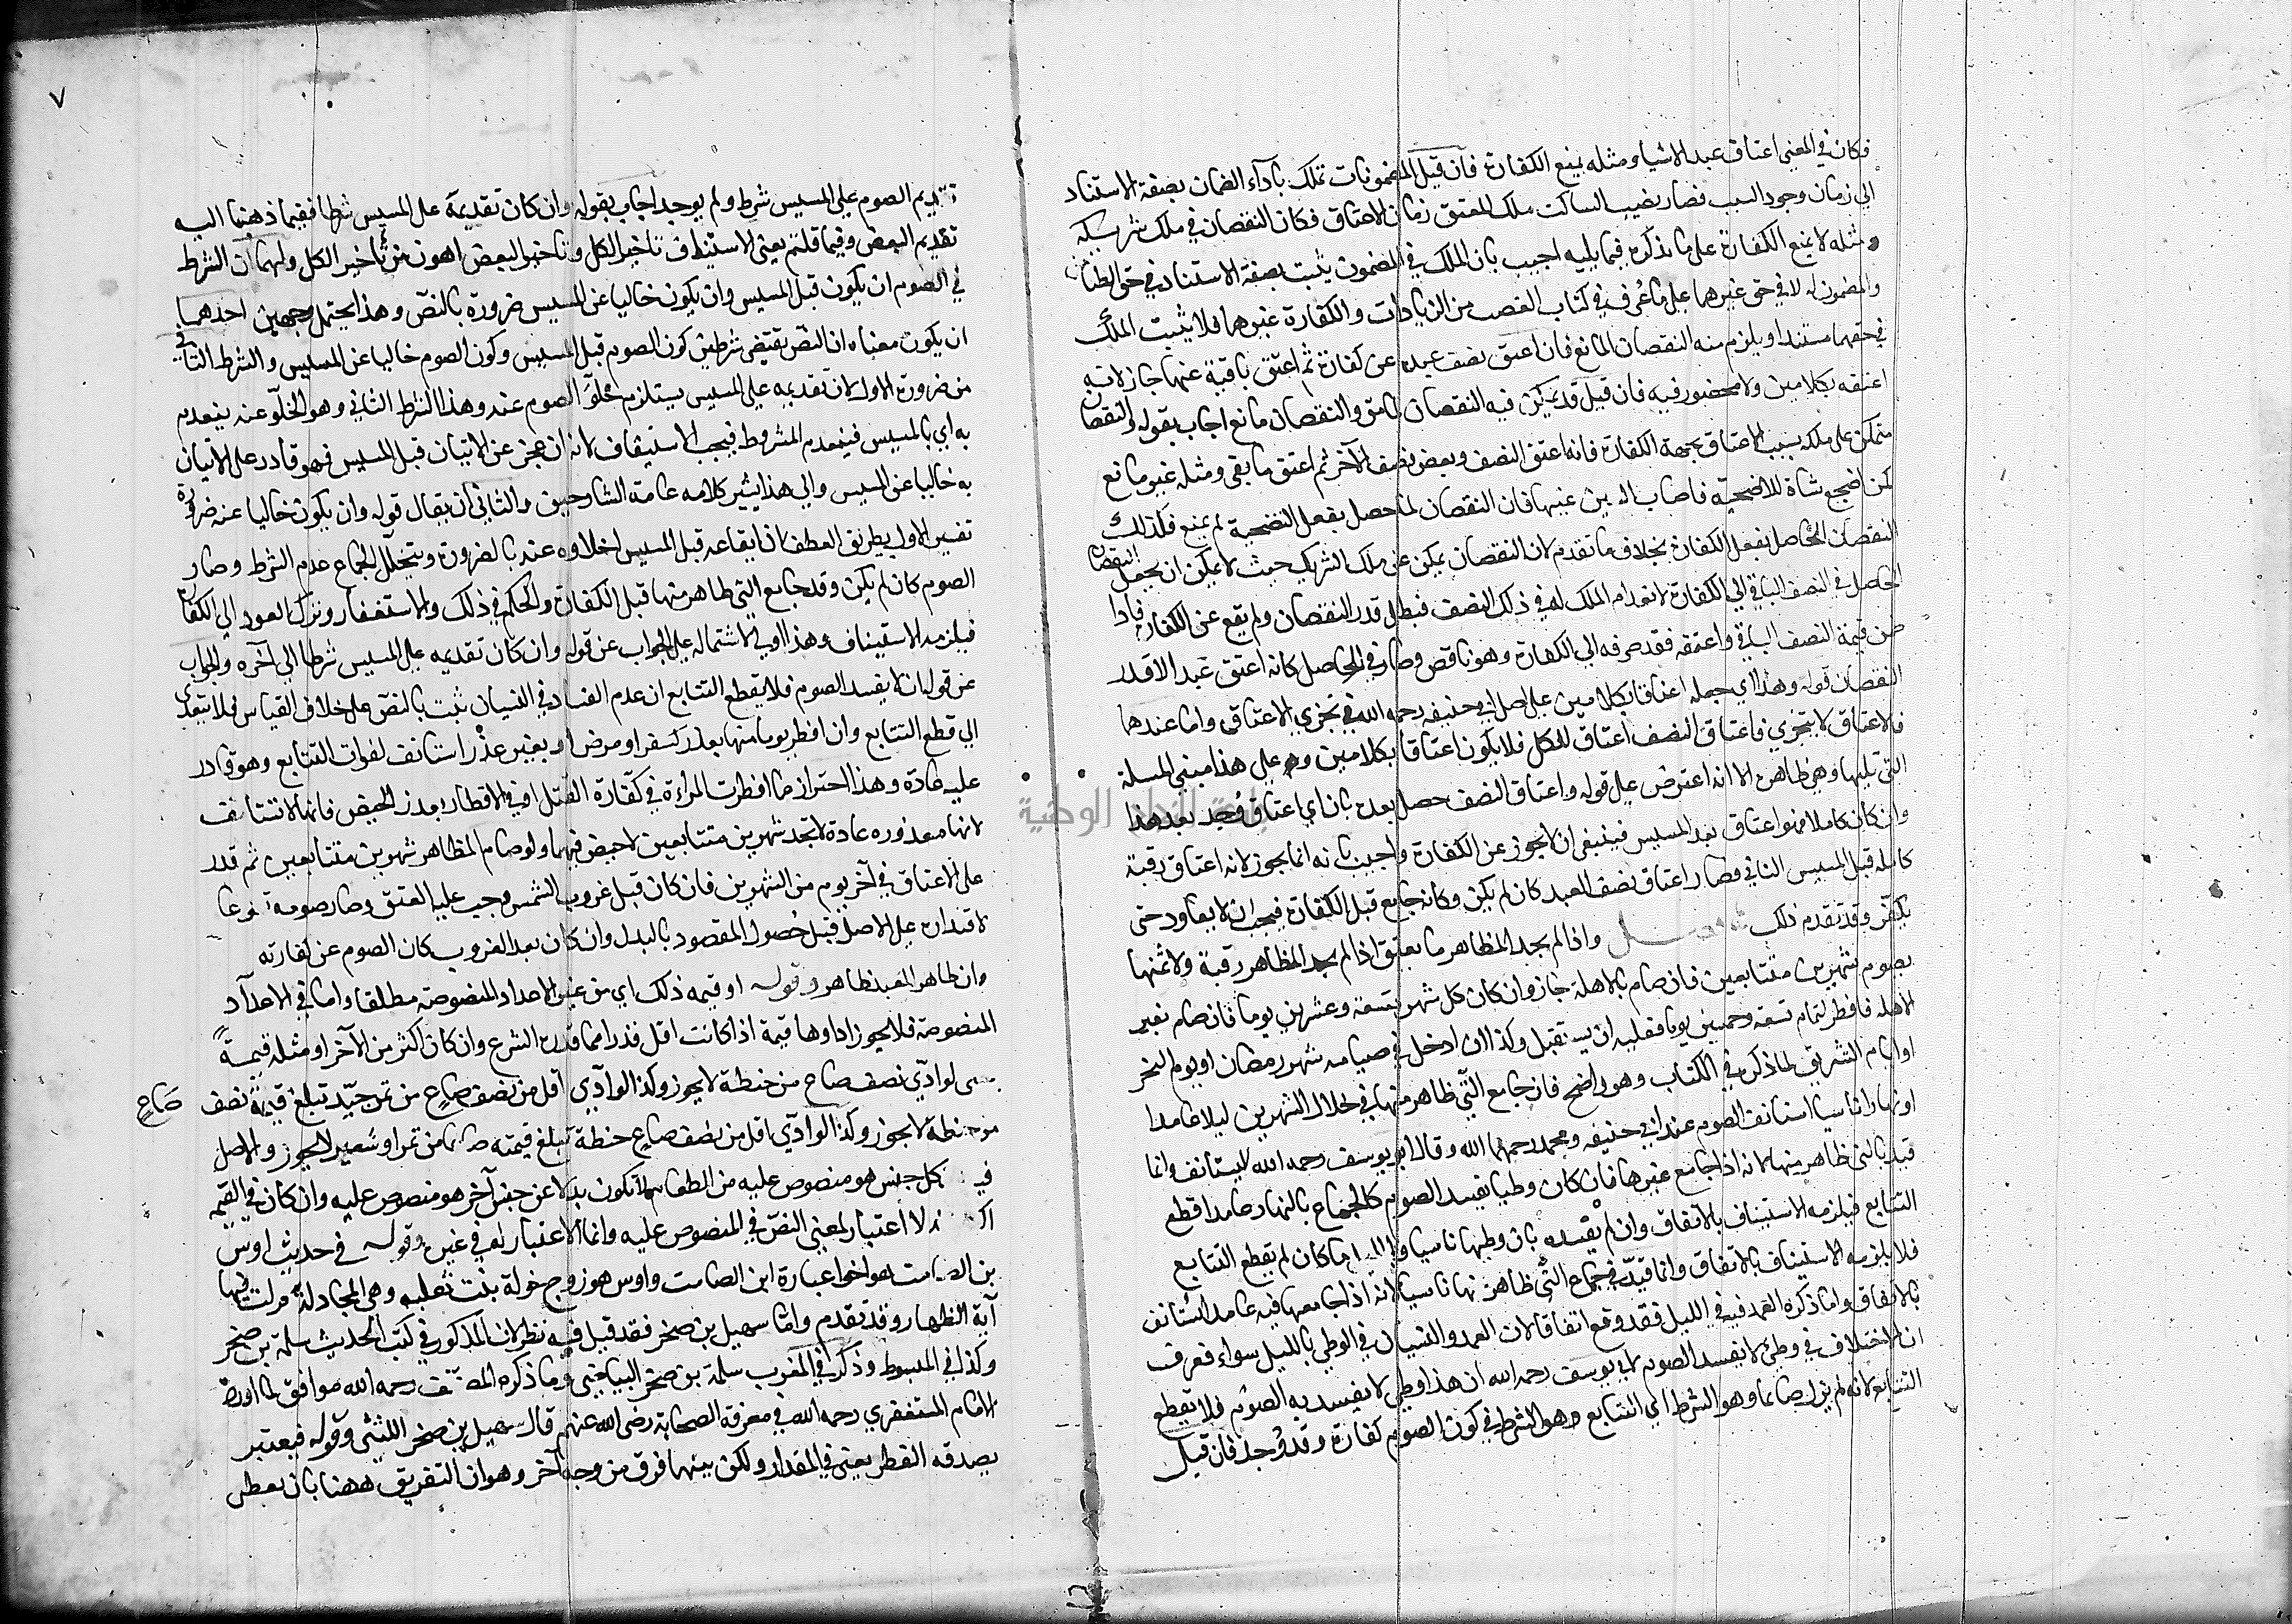 فكان في المعنى اعتاق عبد الا شيا ومثله يمنع الكفارة فان قيل المضمونات تملك باداء الضمان بصفة الاستناد
الي زمان وجود السبب فصار نصيب الساكت ملك المعتق زمان الاعتاق فكان النقصان في ملك شريكه
ومثله لا يمنع الكفارة على ما نذكره فيما يليه اجيب بان الملك في المضمون يثبت بصفة الاستناد في حق الضامن
والمضمون له لا في حق غيرهما على ما عُرف في كتاب الغصب من الزيادات والكفارة غيرهما فلا يثبت الملك
في حقهما مستندا ويلزم منه النقصان المانع فان اعتق نصف عبده عن كفارة ثم اعتق باقية عنها جاز لانه
اعتقه بكلامين ولا محضور فيه فان قيل قد تمكن فيه النقصان لما مر والنقصان مانع اجاب بقوله والنقصان
متمكن على ملكه بسبب الاعتاق بجهة الكفارة فانه اعتق النصف وبعض نصف الآخر ثم اعتق ما بقي ومثله غير مانع
كمن اضجع شاة للاضحية فاصاب السكين عينها فان النقصان لما حصل بفعل التضحية لم يمنع فكذلك
النقصان الحاصل بفعل الكفارة بخلاف ما تقدم لان النقصان تمكن عن ملك الشريك حيث لا يمكن ان يجعل النقصان
الحاصل في النصف الباقي الي الكفارة لانعدام الملك له في ذلك النصف فبطل قدر النقصان ولم يقع عن الكفارة فاذا
ضمن قيمة النصف الباقي واعتقه فقد صرفه الي الكفارة وهو ناقص وصار في الحاصل كانه اعتق عبد الا قدر
النقصان قوله وهذا اي جعله اعتاقا بكلامين على اصل ابي حنيفه رحمه الله في تجزي الاعتاق واما عندهما
فالاعتاق لا يتجزي فاعتاق النصف اعتاق للكل فلا يكون اعتاقا بكلامين وعلى هذا مبنى المسلة
التي تليها وهي ظاهرة الا انه اعترض على قوله واعتاق النصف حصل بعده بان اي اعتاق وُجد بعد هذا
وان كان كاملا فهو اعتاق بعد المسيس فينبغي ان لا يجوز عن الكفارة واجيب بانه انما يجوز لانه اعتاق رقبة
كامله قبل المسيس الثاني فصار اعتاق نصف العبد كان لم يكن وكانه جامع قبل الكفارة فيجب ان لا يعاود حتى
يكفر وقد تقدم ذلك واذا لم يجد المظاهر ما يعتق اذا لم يجد المظاهر رقبة ولا ثمنها
يصوم شهرين متتابعين فان صام بالاهلة جاز وان كان كل شهر بتسعة وعشرين يوما فان صام بغير
الاهله فافطر لتمام تسعة وخمسين يوما فعليه ان يستقبل وكذا ان ادخل في صيامه شهر رمضان او يوم النحر
او ايام التشريق لما ذكر في الكتاب وهو واضح فان جامع التي ظاهر منها في خلال الشهرين ليلا عامدا
او نهارا ناسيا استانف الصوم عند ابي حنيفه ومحمد رحمهما الله وقال ابو يوسف رحمه الله لا يستانف وانما
قيد بالتي ظاهر منها لانه اذا جامع غيرها فان كان وطيا يفسد الصوم كالجماع بالنهار عامدا قطع
التتابع فيلزمه الاستيناف بالاتفاق وان لم يفسده بان وطيها ناسيا او ليلا كيف ما كان لم يقطع التتابع
فلا يلزمه الاستيناف بالاتفاق وانما قيد في جماع التي ظاهر نهارا ناسيا لانه اذا جامعها فيه عامدا استانف
بالاتفاق واما ذكر العمد فيه في الليل فقد وقع اتفاقا لان العمد والنسيان في الوطي بالليل سواء فعرف
ان الاختلاف في وطئ لا يفسد الصوم لابي يوسف رحمه الله ان هذا وطي لا يفسد به الصوم فلا يقطع
التتابع لانه لم يزل صايما وهو الشرط اي التتابع وهو الشرط في كون الصوم كفارة وقد وُجد فان قيل
٧
تقديم الصوم على المسيس شرط ولم يوجد اجاب بقوله وان كان تقديمه على المسيس شرطا ففيما ذهبنا اليه
تقديم البعض وفيما قلتم يعني الاستيناف تاخير الكل وتاخير البعض اهون من تاخير الكل ولهما ان الشرط
في الصوم ان يكون قبل المسيس وان يكون خاليا عن المسيس ضرورة بالنص وهذا يحتمل وجهين احدهما
ان يكون معناه ان النص يقتضي شرطين كون الصوم قبل المسيس وكون الصوم خاليا عن المسيس والشرط الثاني
من ضرورة الاول لان تقديمه على المسيس يستلزم خلوّ الصوم عنه وهذا الشرط الثاني وهو الخلو عنه ينعدم
به اي بالمسيس فينعدم المشروط فيجب الاستيناف لانه ان عجز عن الاتيان قبل المسيس فهو قادر على الاتيان
به خاليا عن المسيس والي هذا يشير كلامه عامة الشارحين والثاني ان يقال قوله وان يكون خاليا عنه ضرورة
تفسير الاول بطريق العطف لان ايقاعه قبل المسيس اخلاوه عنه بالضرورة وبتخلل الجماع عدم الشرط وصار
الصوم كان لم يكن وقد جامع التي ظاهر منها قبل الكفارة والحكم في ذلك والاستغفار وترك العود الي الكفارة
فيلزمه الاستيناف وهذا اولى لاشتماله على الجواب عن قوله وان كان تقديمه على المسيس شرطا الي آخره والجواب
عن قوله ان لا يفسد الصوم فلا يقطع التتابع ان عدم الفساد في النسيان ثبت بالنص على خلاف القياس فلا يتعدى
الي قطع التتابع وان افطر يوما منها بعذر لسفر او مرض او بغير عذر استانف لفوات التتابع وهو قادر
عليه عادة وهذا احتراز عما افطرت المرأة في كفارة القتل او في الافطار بعذر الحيض فانها لا تستانف
لانها معذوره عادة لا تجد شهرين متتابعين لا حيض فيهما ولو صام المظاهر شهرين متتابعين ثم قدر
على الاعتاق في آخر يوم من الشهرين فان كان قبل غروب الشمس وجب عليه العتق وصار صومه تطوعا
لاقتداره على الاصل قبل حصول المقصود بالبدل وان كان بعد الغروب كان الصوم عن كفارته
وان ظاهر العبد ظاهر وقوله او قيمه ذلك اي من غير الاعداد المنصوصة مطلقا واما في الاعداد
المنصوصة فلا يجوز اداوها قيمة اذا كانت اقل قدرا مما قدره الشرع وان كان اكثر من الآخر او مثله قيمة
حتى لو ادّى نصف صاع من حنطة لا يجوز وكذا لو ادّى اقل من نصف صاع من تمر جيّد تبلغ قيمته نصف صاع
من حنطة لا يجوز وكذا لو ادّى اقل من نصف صاع حنطة تبلغ قيمته صاعا من تمر او شعير لا يجوز والاصل
فيه كل جنس هو منصوص عليه من الطعام لا تكون بدلا عن جنس آخر هو منصوص عليه وان كان في القيمه
اكثر لا اعتبار لمعنى النص في المنصوص عليه وانما الاعتبار له في غيره وقوله في حديث اوس
بن الصامت هو اخو عبادة ابن الصامت واوس هو زوج خولة بنت ثعلبه وهي المجادلة نزلت فيها
آية الظهار وقد تقدم واما سهيل بن صخر فقد قيل فيه نظر لان المذكور في كتب الحديث سلمة بن صخر
وكذا في المبسوط وذكر في المغرب سلمة بن صخر البياضي وما ذكره المصنف رحمه الله موافق لما اورده
الامام المستغفري رحمه الله في معرفة الصحابة رضي الله عنهم قال سهيل بن صخر الليثي وقوله فيعتبر
بصدقه الفطر يعني في المقدار ولكن بينهما فرق من وجه آخر وهو ان التفريق ههنا بان يعطى